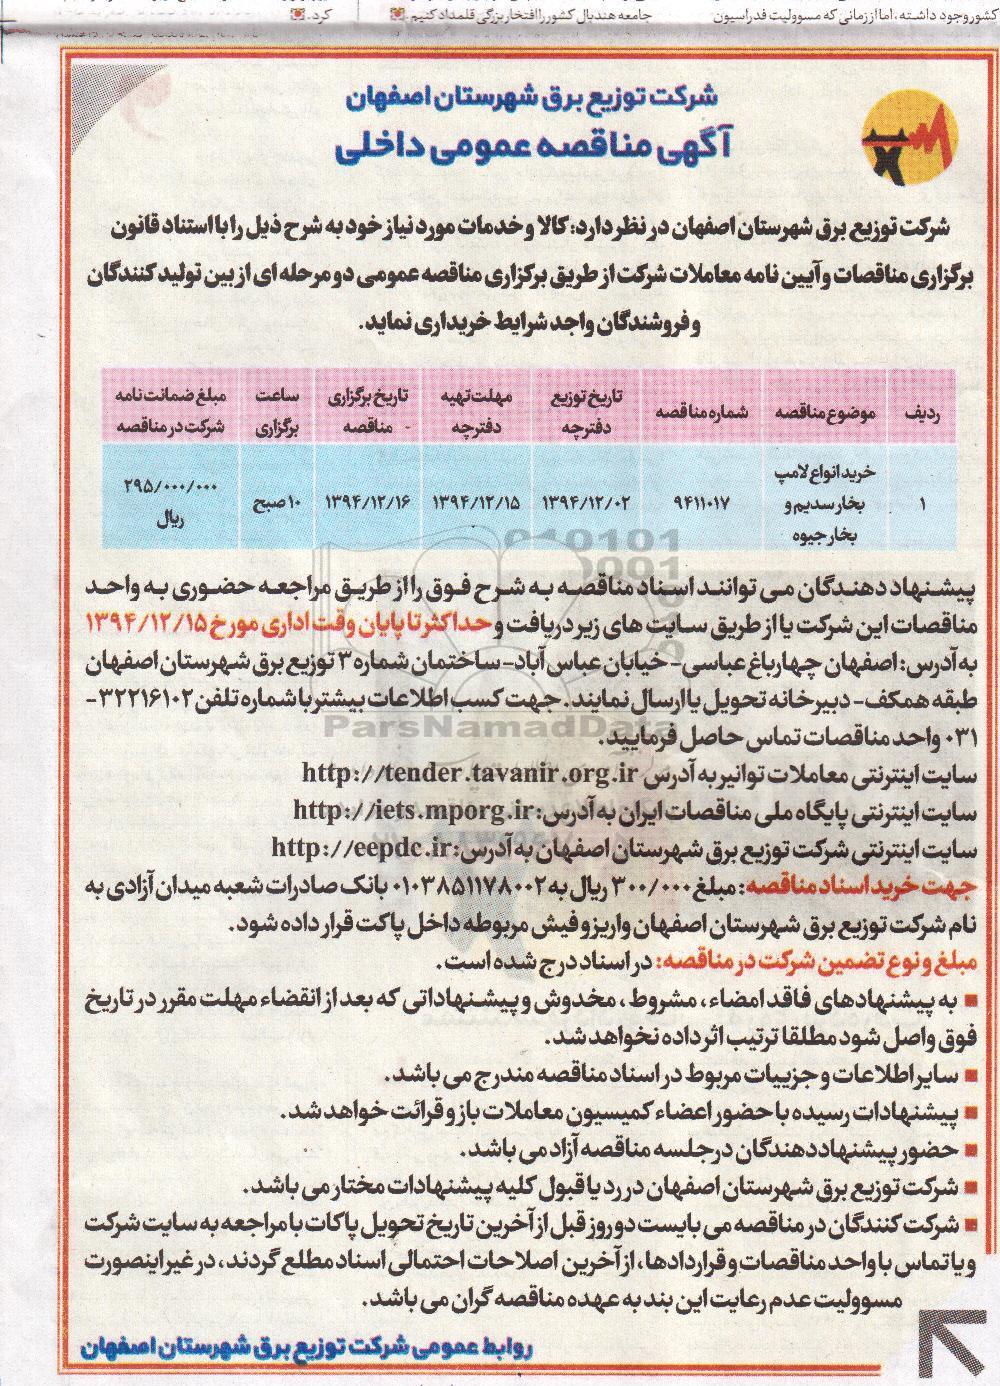 کشور وجود داشته، اما از زمانی که مسوولیت فدراسیون
جامعه هندبال کشور را افتخار بزرگی قلمداد کنیم.
کرد.
شرکت توزیع برق شهرستان اصفهان
آگهی مناقصه عمومی داخلی
شرکت توزیع برق شهرستان اصفهان در نظر دارد: کالا و خدمات مورد نیاز خود به شرح ذیل را با استناد قانون
برگزاری مناقصات و آیین نامه معاملات شرکت از طریق برگزاری مناقصه عمومی دو مرحله ای از بین تولید کنندگان
و فروشندگان واجد شرایط خریداری نماید.
ردیف
موضوع مناقصه
شماره مناقصه
تاریخ توزیع
دفترچه
مهلت تهیه
دفترچه
تاریخ برگزاری
مناقصه
ساعت
برگزاری
مبلغ ضمانت نامه
شرکت در مناقصه
۱
خرید انواع لامپ
بخار سدیم و
بخار جیوه
۹۴۱۱۰۱۷
۱۳۹۴/۱۲/۰۲
۱۳۹۴/۱۲/۱۵
۱۳۹۴/۱۲/۱۶
۱۰ صبح
۲۹۵/۰۰۰/۰۰۰
ریال
پیشنهاد دهندگان می توانند اسناد مناقصه به شرح فوق را از طریق مراجعه حضوری به واحد
مناقصات این شرکت یا از طریق سایت های زیر دریافت و حداکثر تا پایان وقت اداری مورخ ۱۳۹۴/۱۲/۱۵
به آدرس: اصفهان چهارباغ عباسی- خیابان عباس آباد- ساختمان شماره ۳ توزیع برق شهرستان اصفهان
طبقه همکف- دبیرخانه تحویل یا ارسال نمایند. جهت کسب اطلاعات بیشتر با شماره تلفن ۳۲۲۱۶۱۰۲-
۰۳۱ واحد مناقصات تماس حاصل فرمایید.
ParsNamadData
سایت اینترنتی معاملات توانیر به آدرس http://tender.tavanir.org.ir
سایت اینترنتی پایگاه ملی مناقصات ایران به آدرس: http://iets.mporg.ir
سایت اینترنتی شرکت توزیع برق شهرستان اصفهان به آدرس: http://eepdc.ir
جهت خرید اسناد مناقصه: مبلغ ۳۰۰/۰۰۰ ریال به ۰۱۰۳۸۵۱۱۷۸۰۰۲ بانک صادرات شعبه میدان آزادی به
نام شرکت توزیع برق شهرستان اصفهان واریز و فیش مربوطه داخل پاکت قرار داده شود.
مبلغ و نوع تضمین شرکت در مناقصه: در اسناد درج شده است.
به پیشنهادهای فاقد امضاء، مشروط، مخدوش و پیشنهاداتی که بعد از انقضاء مهلت مقرر در تاریخ
فوق واصل شود مطلقا ترتیب اثر داده نخواهد شد.
سایر اطلاعات و جزییات مربوط در اسناد مناقصه مندرج می باشد.
پیشنهادات رسیده با حضور اعضاء کمیسیون معاملات باز و قرائت خواهد شد.
حضور پیشنهاددهندگان در جلسه مناقصه آزاد می باشد.
شرکت توزیع برق شهرستان اصفهان در رد یا قبول کلیه پیشنهادات مختار می باشد.
شرکت کنندگان در مناقصه می بایست دو روز قبل از آخرین تاریخ تحویل پاکات با مراجعه به سایت شرکت
و یا تماس با واحد مناقصات و قراردادها، از آخرین اصلاحات احتمالی اسناد مطلع گردند، در غیر اینصورت
مسوولیت عدم رعایت این بند به عهده مناقصه گران می باشد.
روابط عمومی شرکت توزیع برق شهرستان اصفهان